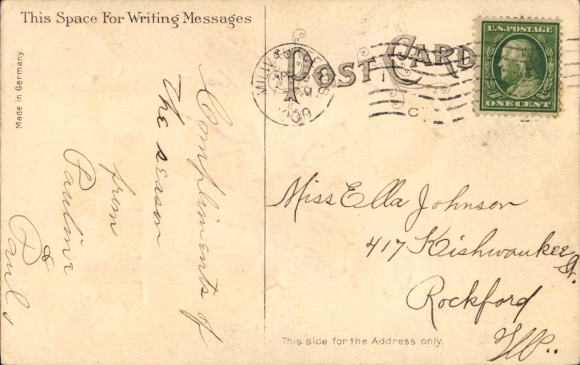 This Space For Writing Messages
POST CARD
U.S. POSTAGE
ONE CENT
Made in Germany.
Compliments of
the season
from
Pauline
&
Paul
Miss Ella Johnson
417 Kishwaukee St.
Rockford
Ill..
This side for the Address only.